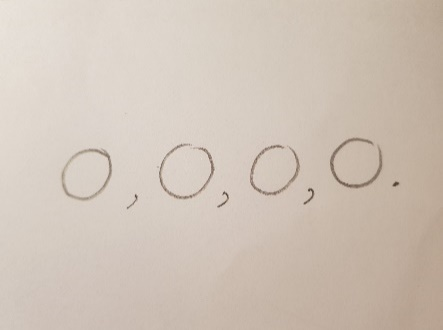 O, O, O, O.